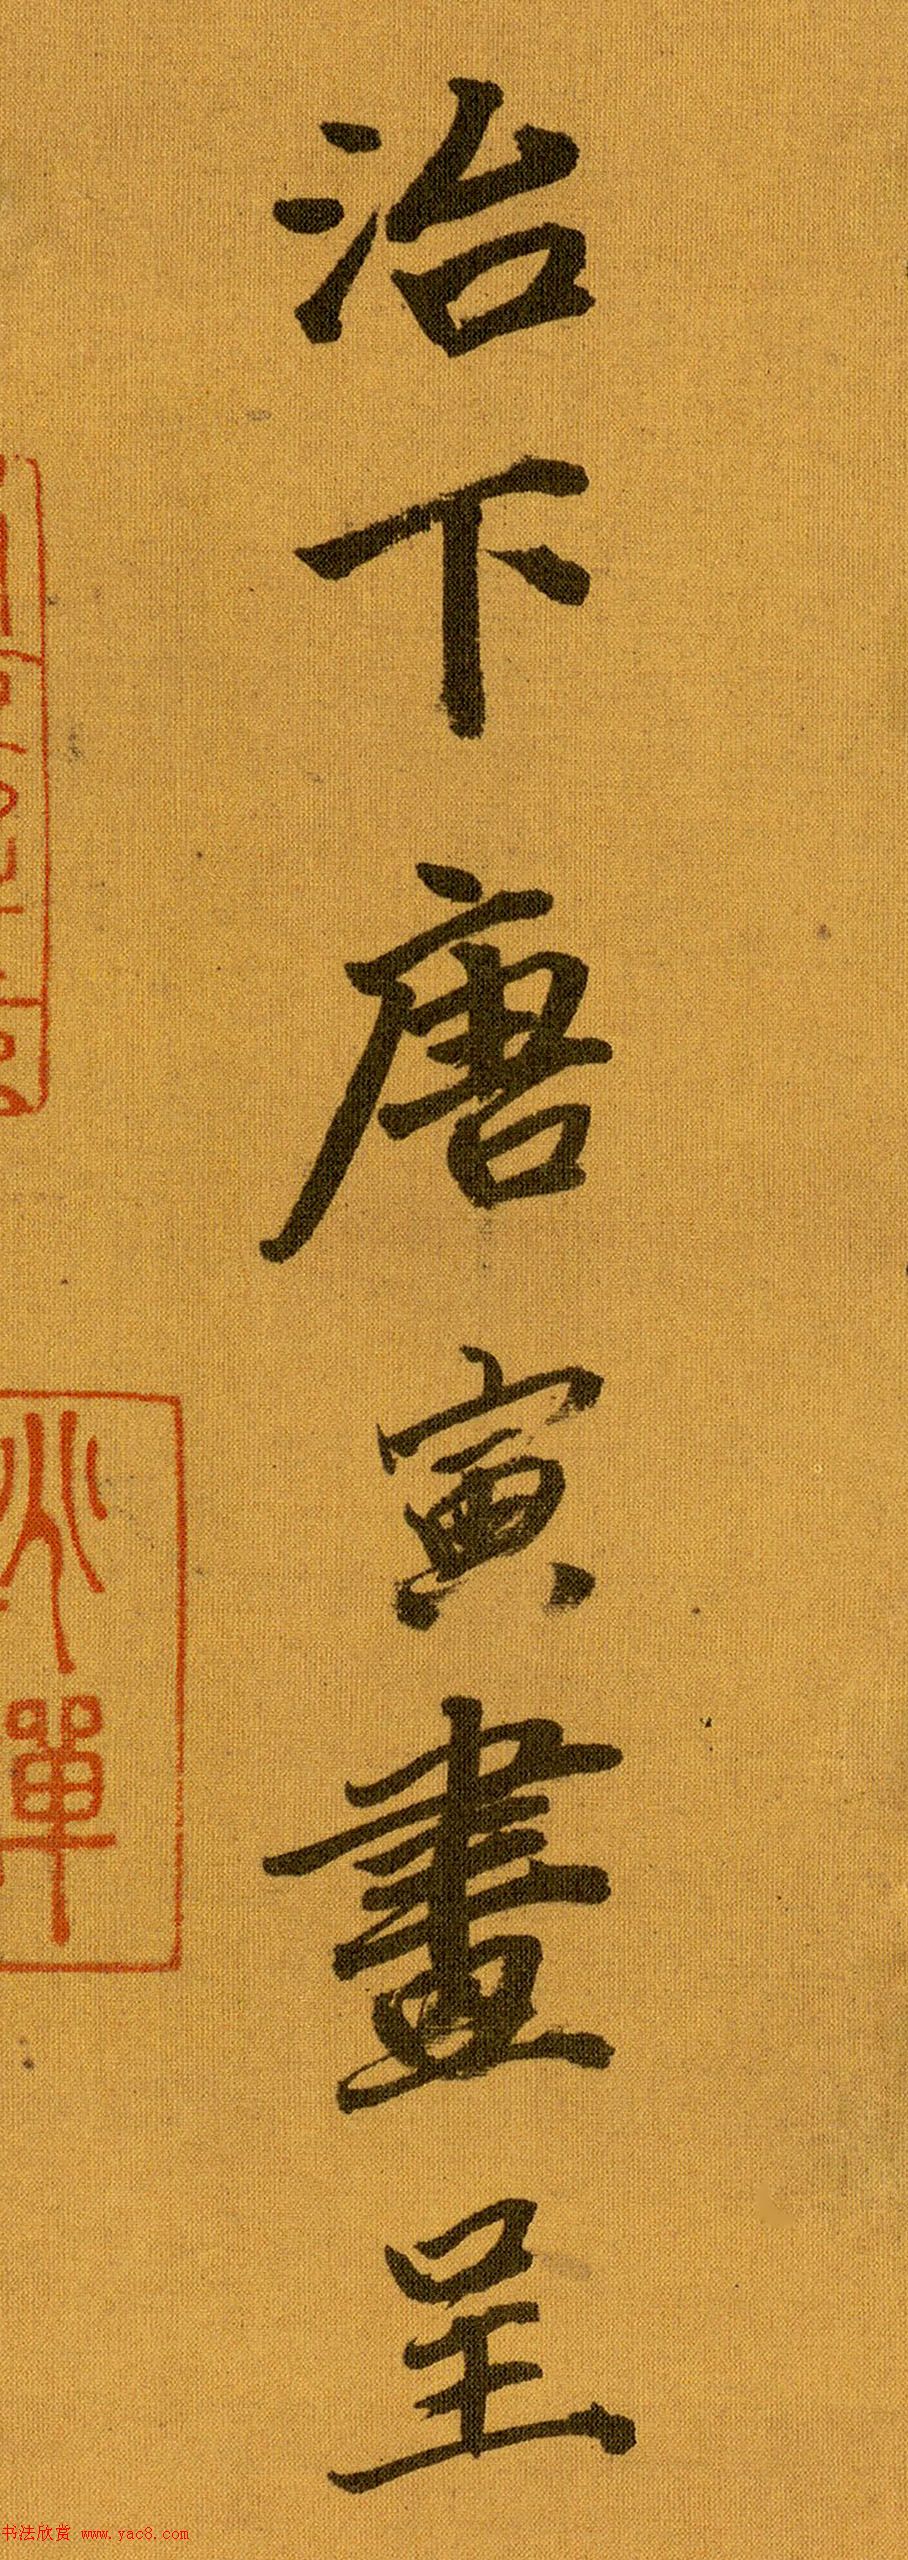 治下唐寅畫呈
书法欣赏 www.yac8.com